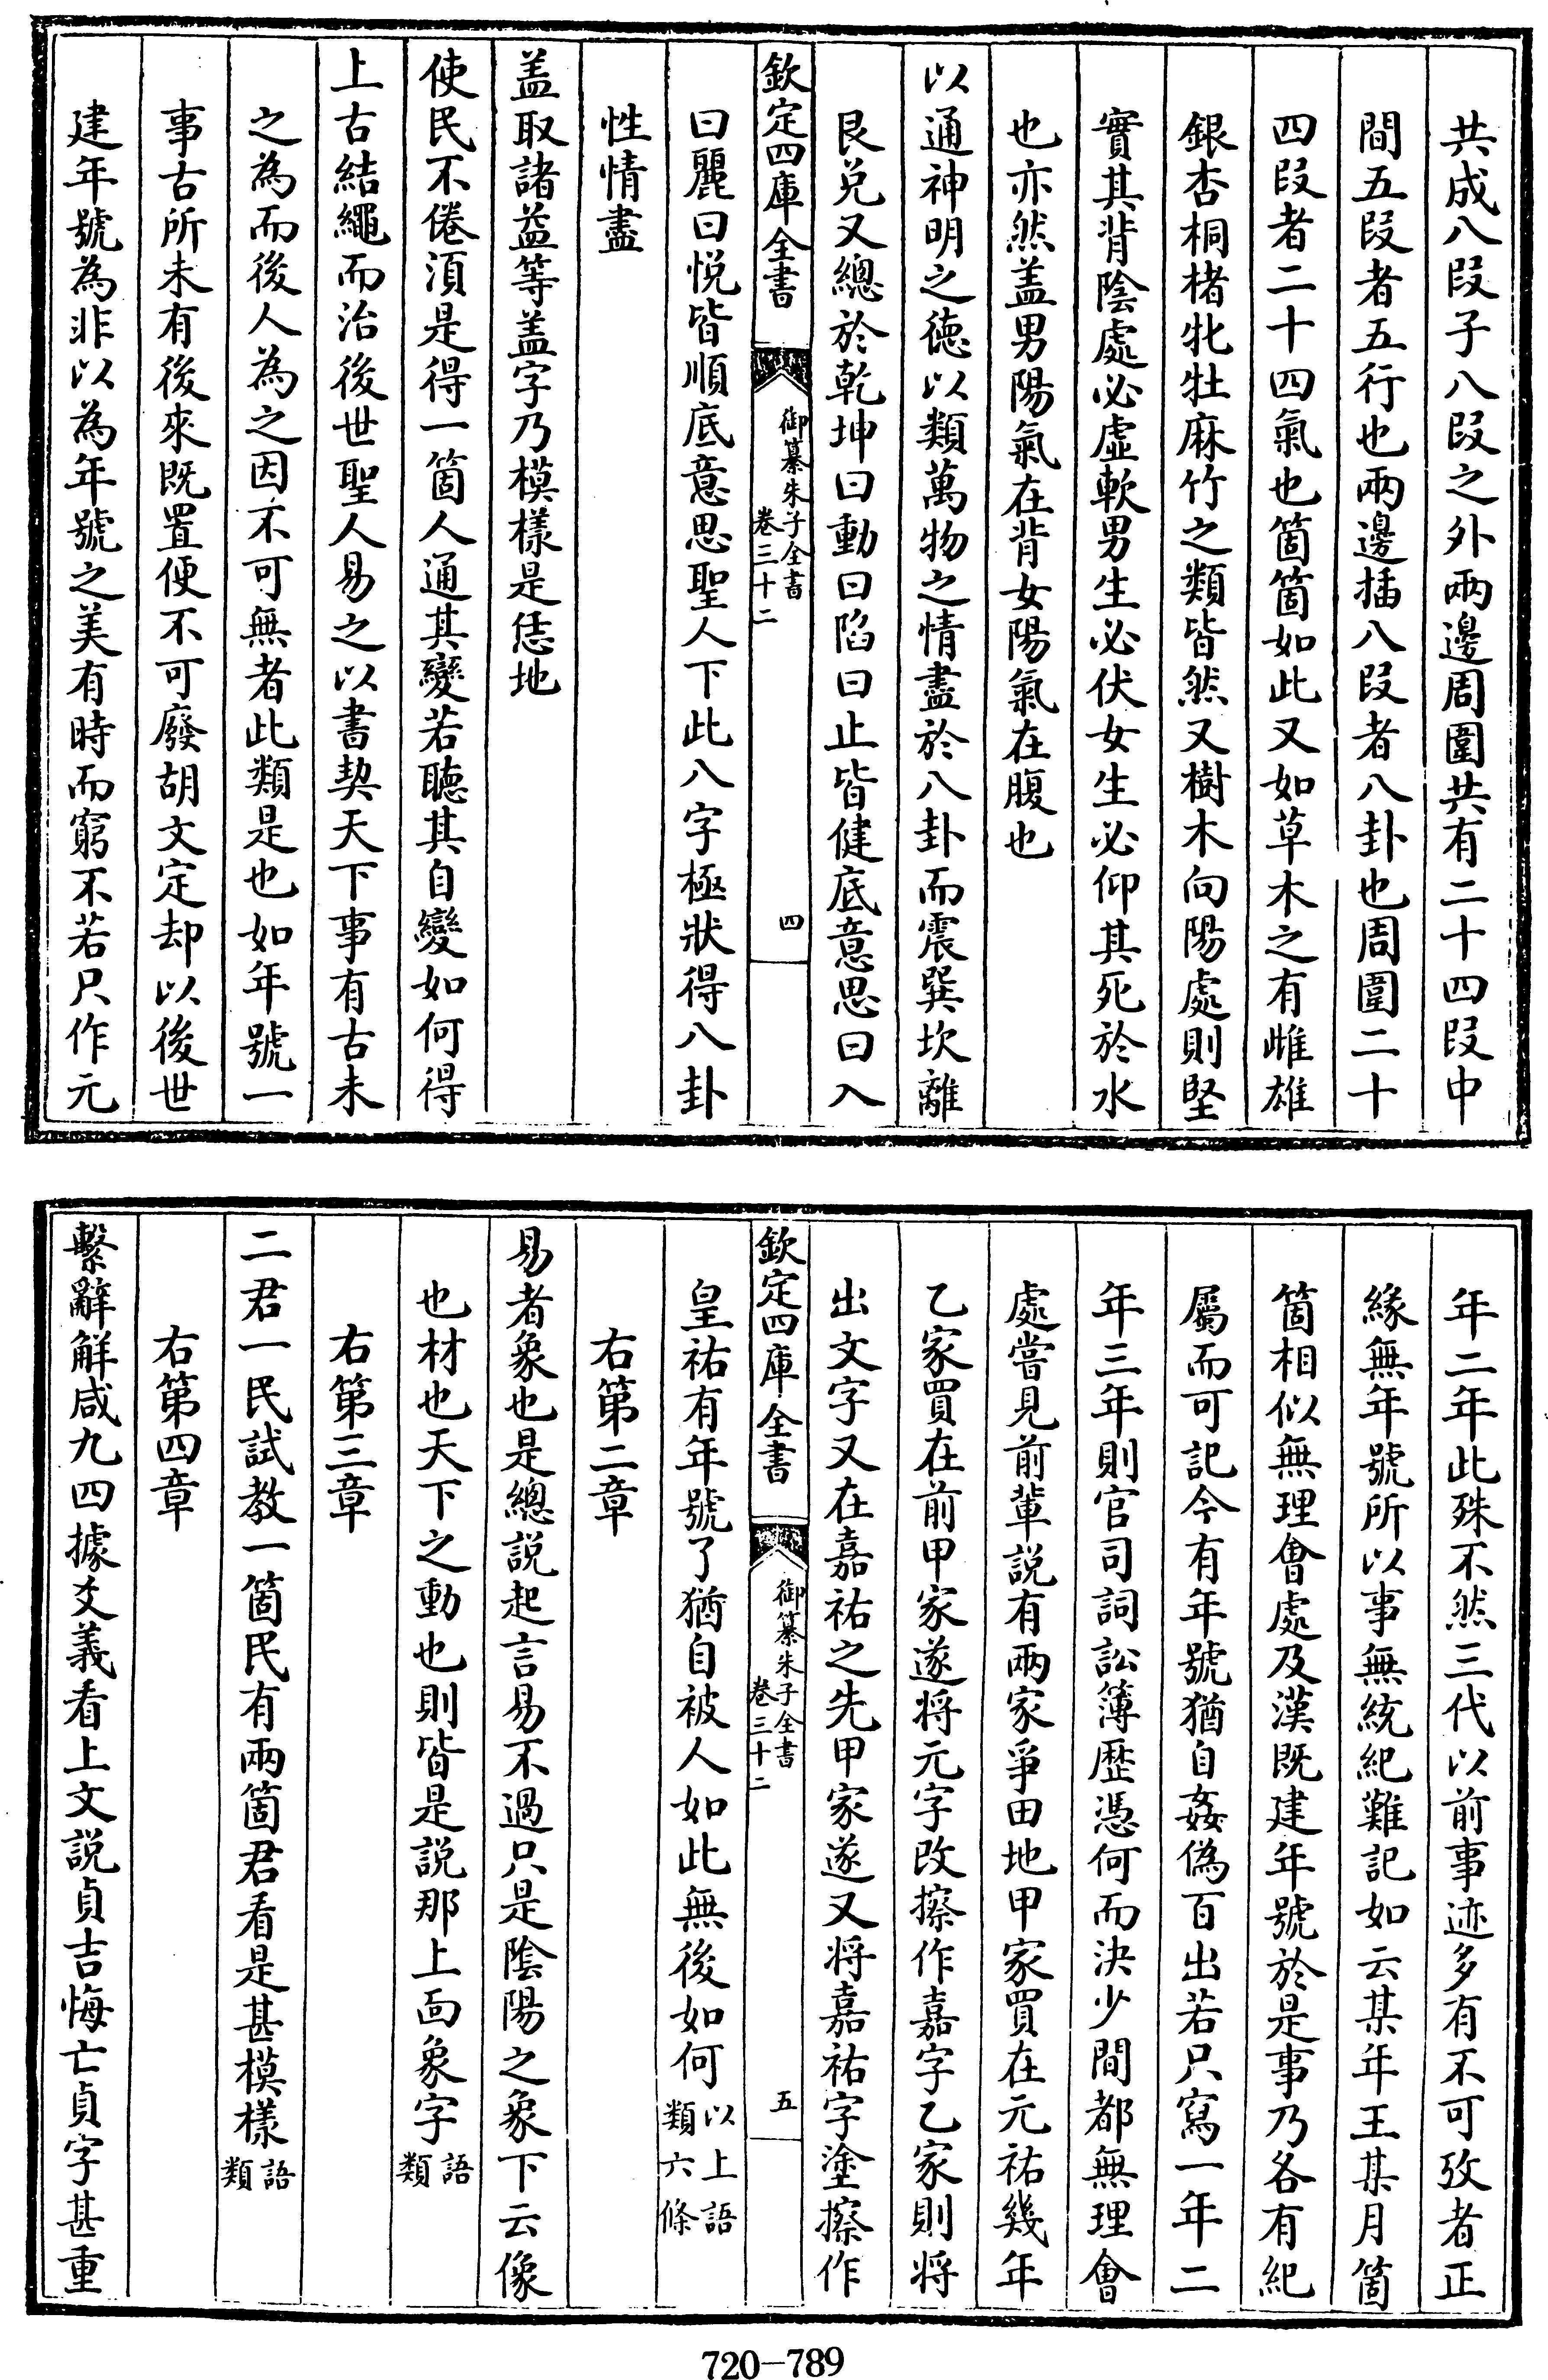 共成八段子八段之外兩邊周圍共有二十四段中
間五段者五行也兩邊插八段者八卦也周圍二十
四段者二十四氣也箇箇如此又如草木之有雌雄
銀杏桐楮牝牡麻竹之類皆然又樹木向陽處則堅
實其背陰處必虛軟男生必伏女生必仰其死於水
也亦然盖男陽氣在背女陽氣在腹也
以通神明之徳以類萬物之情盡於八卦而震巽坎離
艮兌又總於乾坤曰動曰陷曰止皆健底意思曰入
欽定四庫全書
御纂朱子全書
卷三十二
四
曰麗曰悦皆順底意思聖人下此八字極狀得八卦
性情盡
盖取諸益等盖字乃模樣是恁地
使民不倦須是得一箇人通其變若聽其自變如何得
上古結繩而治後世聖人易之以書契天下事有古未
之為而後人為之因不可無者此類是也如年號一
事古所未有後來既置便不可廢胡文定却以後世
建年號為非以為年號之美有時而窮不若只作元
年二年此殊不然三代以前事迹多有不可攷者正
緣無年號所以事無統紀難記如云某年王某月箇
箇相似無理㑹處及漢既建年號於是事乃各有紀
屬而可記今有年號猶自姦偽百出若只寫一年二
年三年則官司詞訟簿歴憑何而決少間都無理㑹
處嘗見前輩説有兩家爭田地甲家買在元祐幾年
乙家買在前甲家遂将元字改擦作嘉字乙家則将
出文字又在嘉祐之先甲家遂又将嘉祐字塗擦作
欽定四庫全書
御纂朱子全書
卷三十二
五
皇祐有年號了猶自被人如此無後如何以上語類六條
右第二章
易者象也是總説起言易不過只是陰陽之象下云像
也材也天下之動也則皆是説那上面象字語類
右第三章
二君一民試教一箇民有兩箇君看是甚模樣語類
右第四章
繫辭解咸九四據爻義看上文説貞吉悔亡貞字甚重
720-789